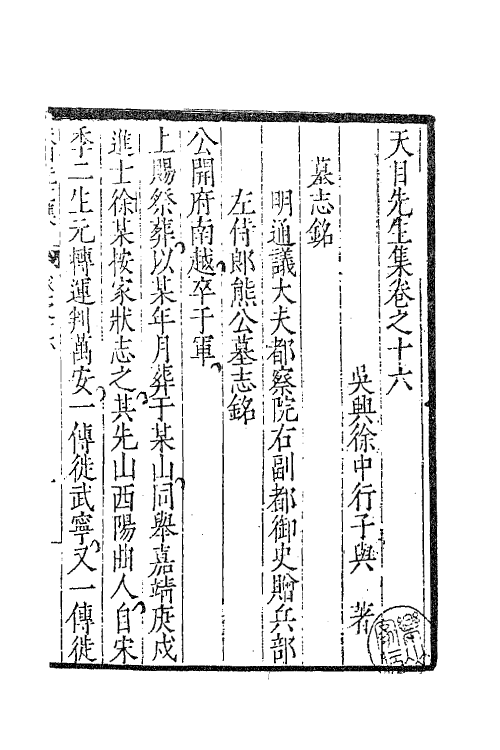 天目先生集卷之十六
吳興徐中行子與　著
墓志銘
明通議大夫都察院右副都御史贈兵部
左侍郎熊公墓志銘
公開府南越卒于軍
上賜祭葬以某年月葬于某山同舉嘉靖庚戌
進士徐某按家狀志之其先山西陽曲人自宋
季二生元轉運判萬安一傳徙武寧又一傳徙